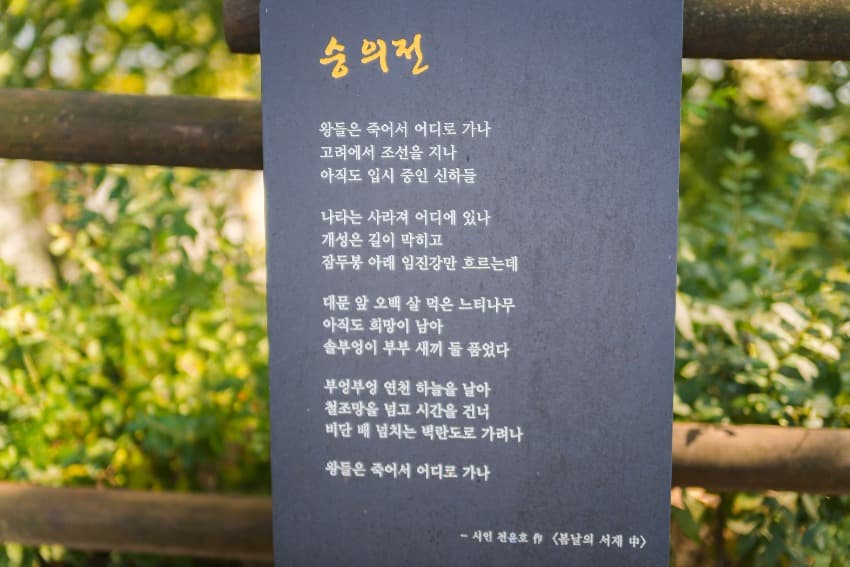 숭의전
왕들은 죽어서 어디로 가나
고려에서 조선을 지나
아직도 입시 중인 신하들
나라는 사라져 어디에 있나
개성은 길이 막히고
잠두봉 아래 임진강만 흐르는데
대문 앞 오백 살 먹은 느티나무
아직도 희망이 남아
솔부엉이 부부 새끼 둘 품었다
부엉부엉 연천 하늘을 날아
철조망을 넘고 시간을 건너
비단 배 넘치는 벽란도로 가려나
왕들은 죽어서 어디로 가나
- 시인 전윤호 作 〈봄날의 서재 中〉